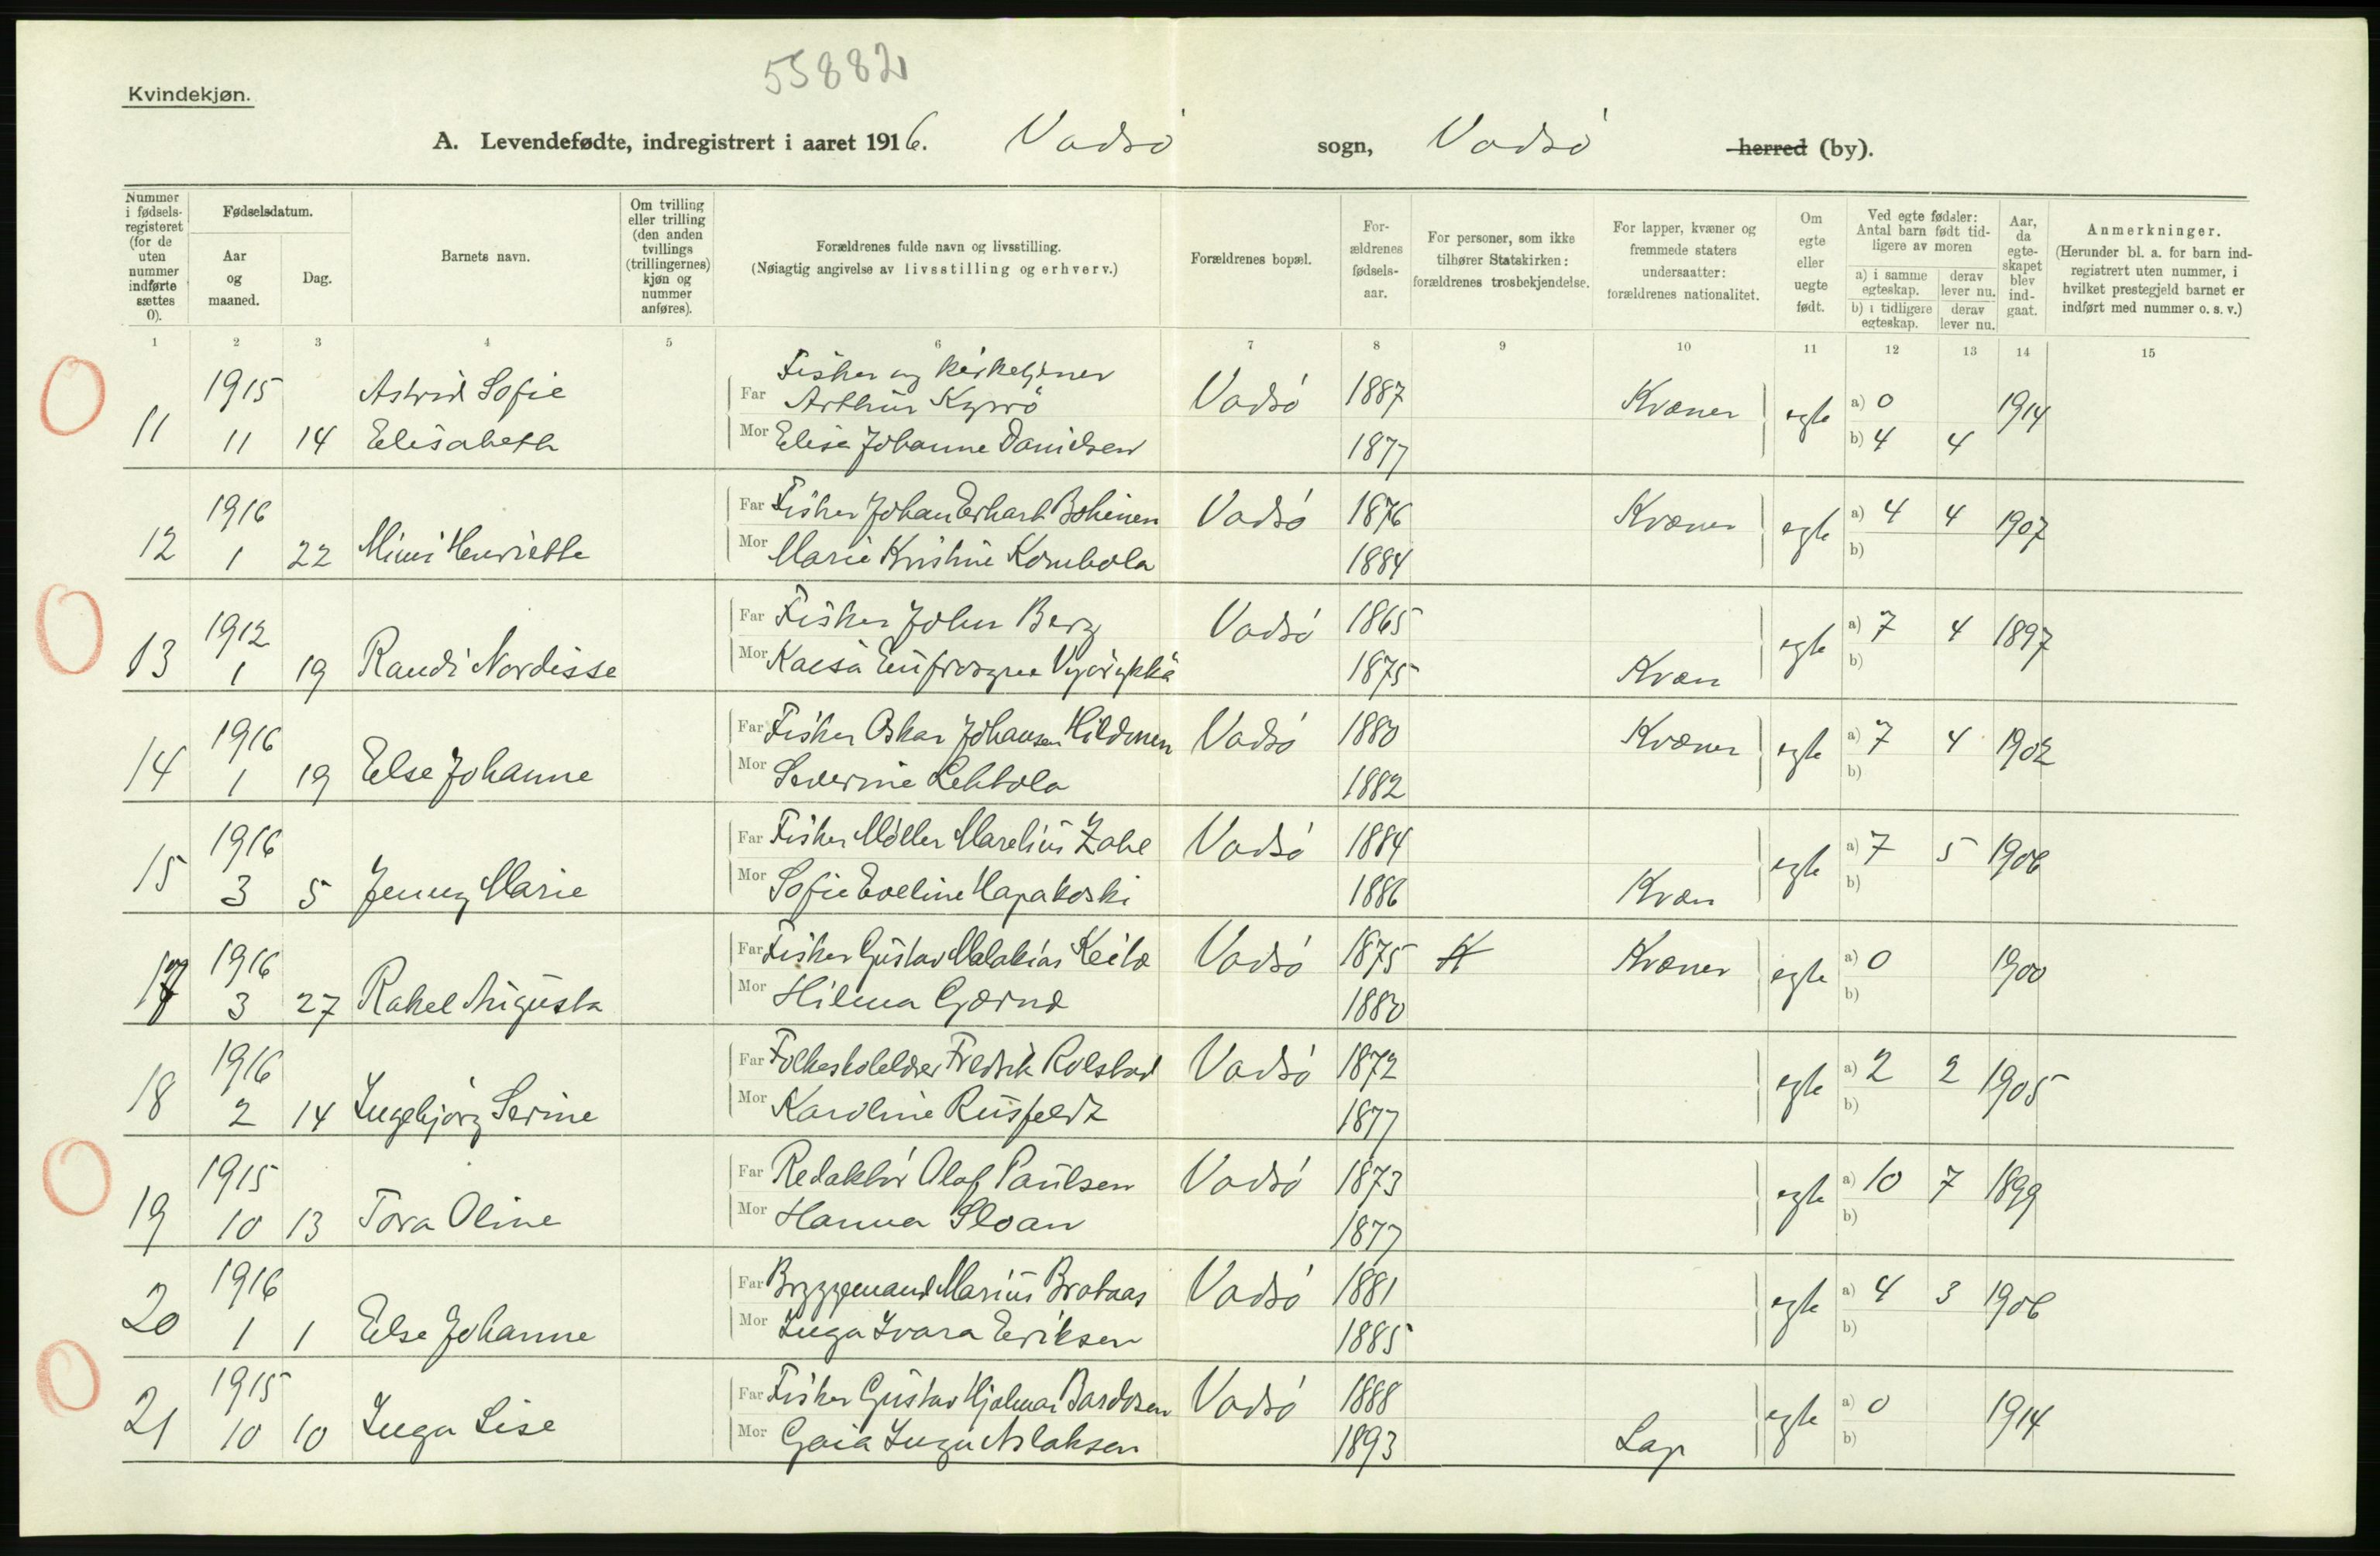 55882
Kvindekjøn.
A. Levendefødte, indregistrert i aaret 1916. Vadsø sogn, Vadsø herred (by).
Nummer i fødsels-registeret (for de uten nummer indførte sættes 0).
Fødselsdatum.
Aar og maaned.
Dag.
Barnets navn.
Om tvilling eller trilling (den anden tvillings (trillingernes) kjøn og nummer anføres).
Forældrenes fulde navn og livsstilling.
(Nøiagtig angivelse av livsstilling og erhverv.)
Forældrenes bopæl.
For-ældrenes fødsels-aar.
For personer, som ikke tilhører Statskirken: forældrenes trosbekjendelse.
For lapper, kvæner og fremmede staters undersaatter: forældrenes nationalitet.
Om egte eller uegte født.
Ved egte fødsler: Antal barn født tid-ligere av moren
a) i samme egteskap. derav lever nu.
b) i tidligere egteskap. derav lever nu.
Aar, da egte-skapet blev ind-gaat.
Anmerkninger.
(Herunder bl. a. for barn ind-registrert uten nummer, i hvilket prestegjeld barnet er indført med nummer o. s. v.)
1 2 3 4 5 6 7 8 9 10 11 12 13 14 15
Fisker og kirketjener
1915 Astrid Sofie Far Arthur Kyrrö Vadsø 1887 Kvæner egte a) 0 1914
11 11 14 Elisabeth Mor Elisa Johanne Danielsen 1877 b) 4 4
1916 Far Fisker Johan Erhart Bohinen Vadsø 1876 Kvæner egte a) 4 4 1907
12 1 22 Mimi Henriette Mor Marie Kristine Kombola 1884 b)
1912 Far Fisker John Berg Vadsø 1865 egte a) 7 4 1897
13 1 19 Randi Nordisse Mor Kaesa Eufrosyne 1875 Kvæn b)
1916 Far Fisker Oskar Johansen Hildonen Vadsø 1880 Kvæner egte a) 7 4 1902
14 1 19 Else Johanne Mor Severine Lehtola 1882 b)
1916 Far Fisker Möller Marelius Zahl Vadsø 1884 egte a) 7 5 1906
15 3 5 Jenny Marie Mor Sofie Eveline Hapakoski 1886 Kvæn b)
1916 Far Fisker Gustav Malakias Keila Vadsø 1875 K Kvæner egte a) 0 1900
17 3 27 Rakel Augusta Mor Hilma 1880 b)
1916 Far Folkeskolelærer Fredrik Rolstad Vadsø 1872 egte a) 2 2 1905
18 2 14 Ingebjörg Serine Mor Karoline Rusfeldt 1877 b)
1915 Far Redaktör Olaf Paulsen Vadsø 1873 egte a) 10 7 1899
19 10 13 Tora Oline Mor Hanna Sloan 1877 b)
1916 Far Bryggemand Marius Brataas Vadsø 1881 egte a) 4 3 1906
20 1 1 Else Johanne Mor Inga Ivara Eriksen 1885 b)
1915 Far Fisker Gustav Hjalmar Bardosen Vadsø 1888 egte a) 0 1914
21 10 10 Inga Lise Mor Gaia Inga Aslaksen 1893 Lap b)